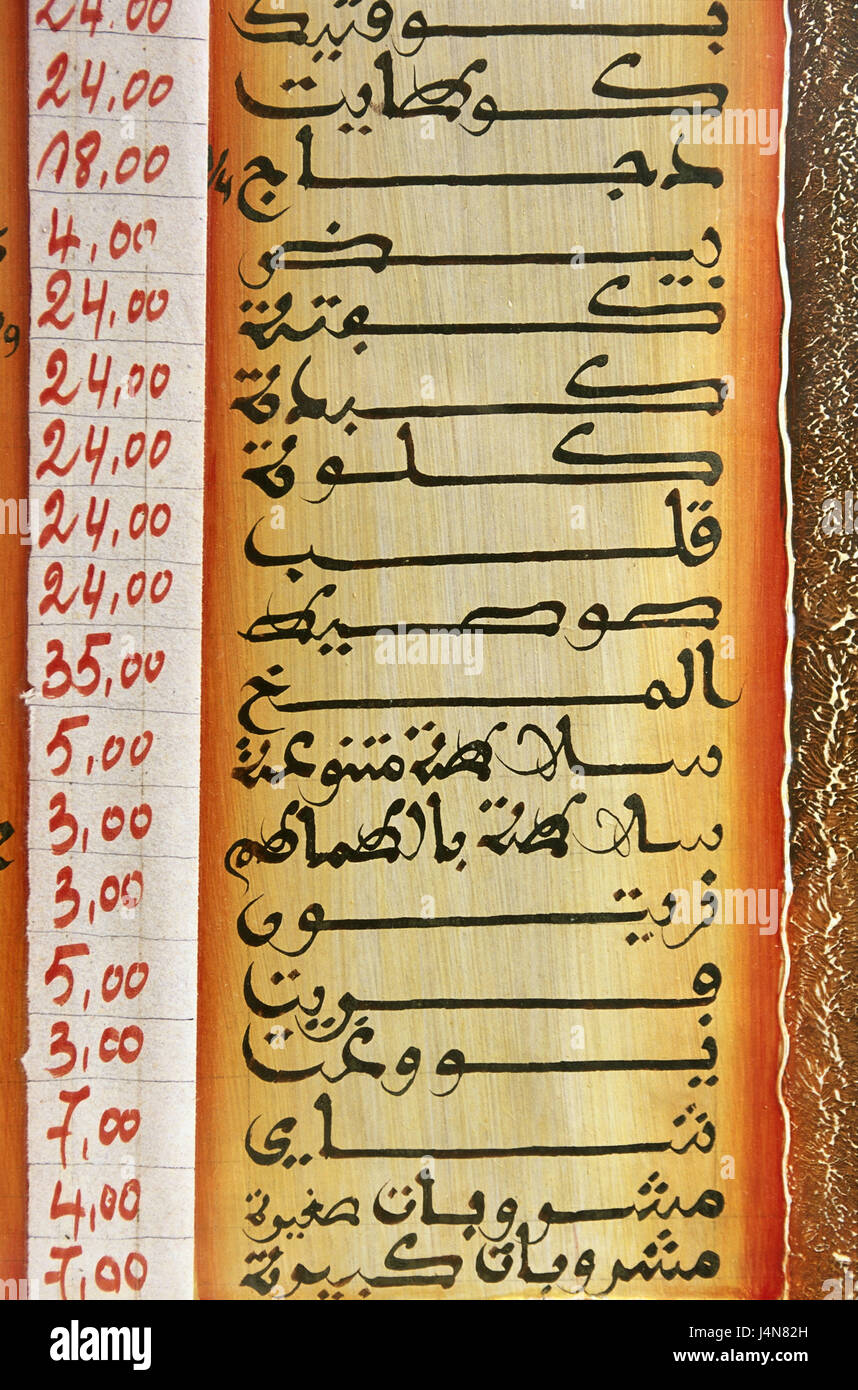 بوفتيك 24.00
كوطايت 24,00
دجاج 1/4 18,00
بيض 4,00
كفتة 24,00
كبدة 24,00
كلوة 24,00
قلب 24,00
صوصيط 24,00
المخ 35,00
سلاطة متنوعة 5,00
سلاطة بالطماطم 3,00
3,00
فريت 5,00
يووغت 3,00
شاي 7,00
مشروبات صغيرة 4,00
مشروبات كبيرة 7,00
alamy
Image ID: J14N82H
www.alamy.com